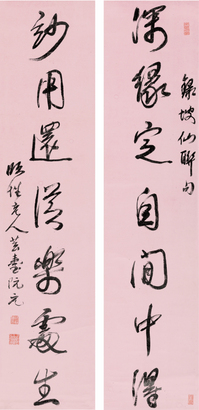 錄坡仙聯句
深緣定自閒中得
妙用還從樂處生
頤性老人芸臺阮元